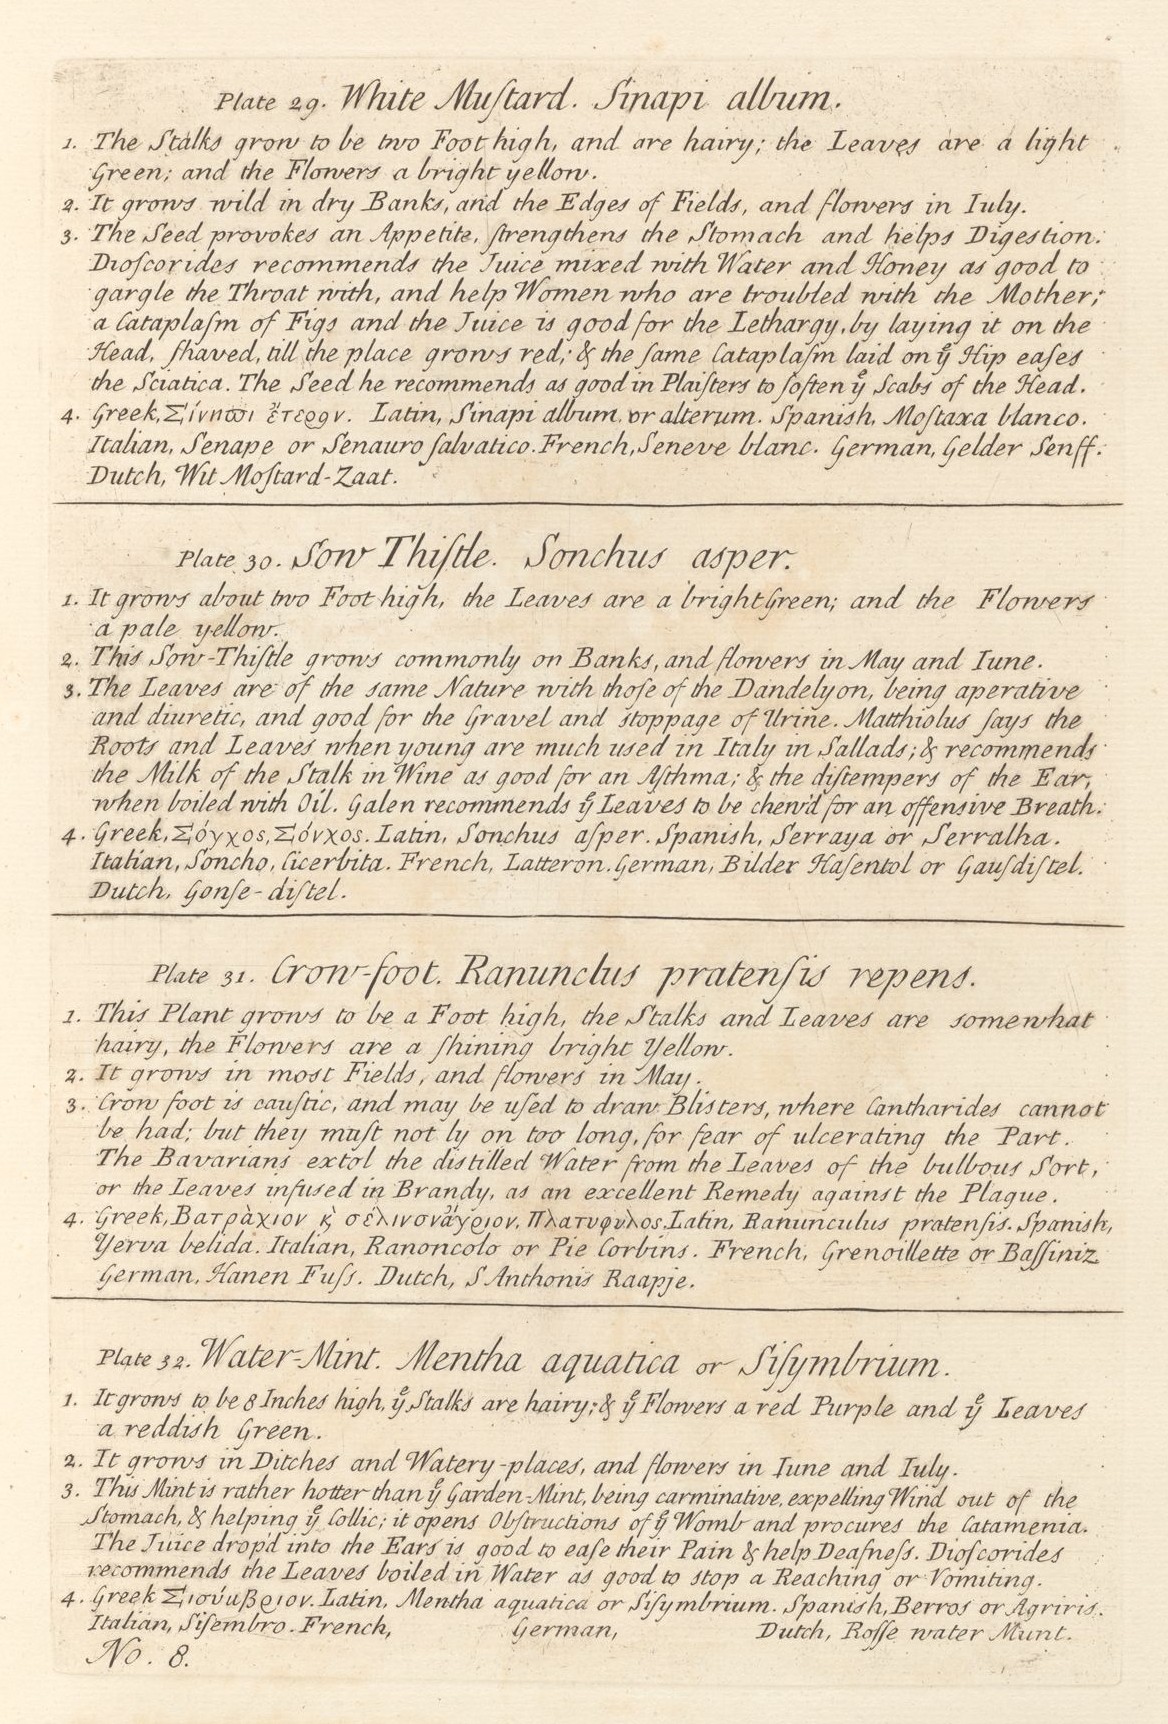 Plate 29. White Muſtard. Sinapi album.
1. The Stalks grow to be two Foot high, and are hairy; the Leaves are a light
Green; and the Flowers a bright yellow.
2. It grows wild in dry Banks, and the Edges of Fields, and flowers in Iuly.
3. The Seed provokes an Appetite, ſtrengthens the Stomach and helps Digestion.
Dioſcorides recommends the Juice mixed with Water and Honey as good to
gargle the Throat with, and help Women who are troubled with the Mother;
a Cataplaſm of Figs and the Juice is good for the Lethargy, by laying it on the
Head, ſhaved, till the place grows red; & the ſame Cataplaſm laid on yͤ Hip eaſes
the Sciatica. The Seed he recommends as good in Plaiſters to ſoften yͤ Scabs of the Head.
4. Greek, Σίνηϖι ἕτερον. Latin, Sinapi album, or alterum. Spanish, Moſtaxa blanco.
Italian, Senape or Senauro ſalvatico. French, Seneve blanc. German, Gelder Senff.
Dutch, Wit Moſtard-Zaat.
Plate 30. Sow Thiſtle. Sonchus asper.
1. It grows about two Foot high, the Leaves are a bright Green; and the Flowers
a pale yellow.
2. This Sow-Thiſtle grows commonly on Banks, and flowers in May and Iune.
3. The Leaves are of the same Nature with thoſe of the Dandelyon, being aperative
and diuretic, and good for the Gravel and stoppage of Urine. Matthiolus ſays the
Roots and Leaves when young are much used in Italy in Sallads; & recommends
the Milk of the Stalk in Wine as good for an Aſthma; & the diſtempers of the Ear,
when boiled with Oil. Galen recommends yͤ Leaves to be chew'd for an offensive Breath.
4. Greek, Σόγχος, Σόνχος. Latin, Sonchus aſper. Spanish, Serraya or Serralha.
Italian, Soncho, Cicerbita. French, Latteron. German, Bilder Haſentol or Gauſdiſtel.
Dutch, Gonſe-diſtel.
Plate 31. Crow-foot. Ranunclus pratenſis repens.
1. This Plant grows to be a Foot high, the Stalks and Leaves are somewhat
hairy, the Flowers are a ſhining bright Yellow.
2. It grows in most Fields, and flowers in May.
3. Crow foot is cauſtic, and may be uſed to draw Blisters, where Cantharides cannot
be had; but they muſt not ly on too long, for fear of ulcerating the Part.
The Bavarians extol the distilled Water from the Leaves of the bulbous Sort,
or the Leaves infused in Brandy, as an excellent Remedy against the Plague.
4. Greek, Βατράχιον κ̀ σέλινονἄγριον, Πλατυφυλος. Latin, Ranunculus pratenſis. Spanish,
Yerva belida. Italian, Ranoncolo or Pie Corbins. French, Grenoillette or Baſſiniz
German, Hanen Fuſs. Dutch, S Anthonis Raapje.
Plate 32. Water-Mint. Mentha aquatica or Siſymbrium.
1. It grows to be 8 Inches high, yͤ Stalks are hairy; & yͤ Flowers a red Purple and yͤ Leaves
a reddish Green.
2. It grows in Ditches and Watery-places, and flowers in Iune and Iuly.
3. This Mint is rather hotter than yͤ Garden-Mint, being carminative, expelling Wind out of the
Stomach, & helping yͤ Collic; it opens Obſtructions of yͤ Womb and procures the Catamenia.
The Juice drop'd into the Ears is good to ease their Pain & help Deafneſs. Dioſcorides
recommends the Leaves boiled in Water as good to stop a Reaching or Vomiting.
4. Greek Σισύμβριον. Latin, Mentha aquatica or Siſymbrium. Spanish, Berros or Agriris.
Italian, Siſembro. French, German, Dutch, Roſſe water Munt.
No. 8.